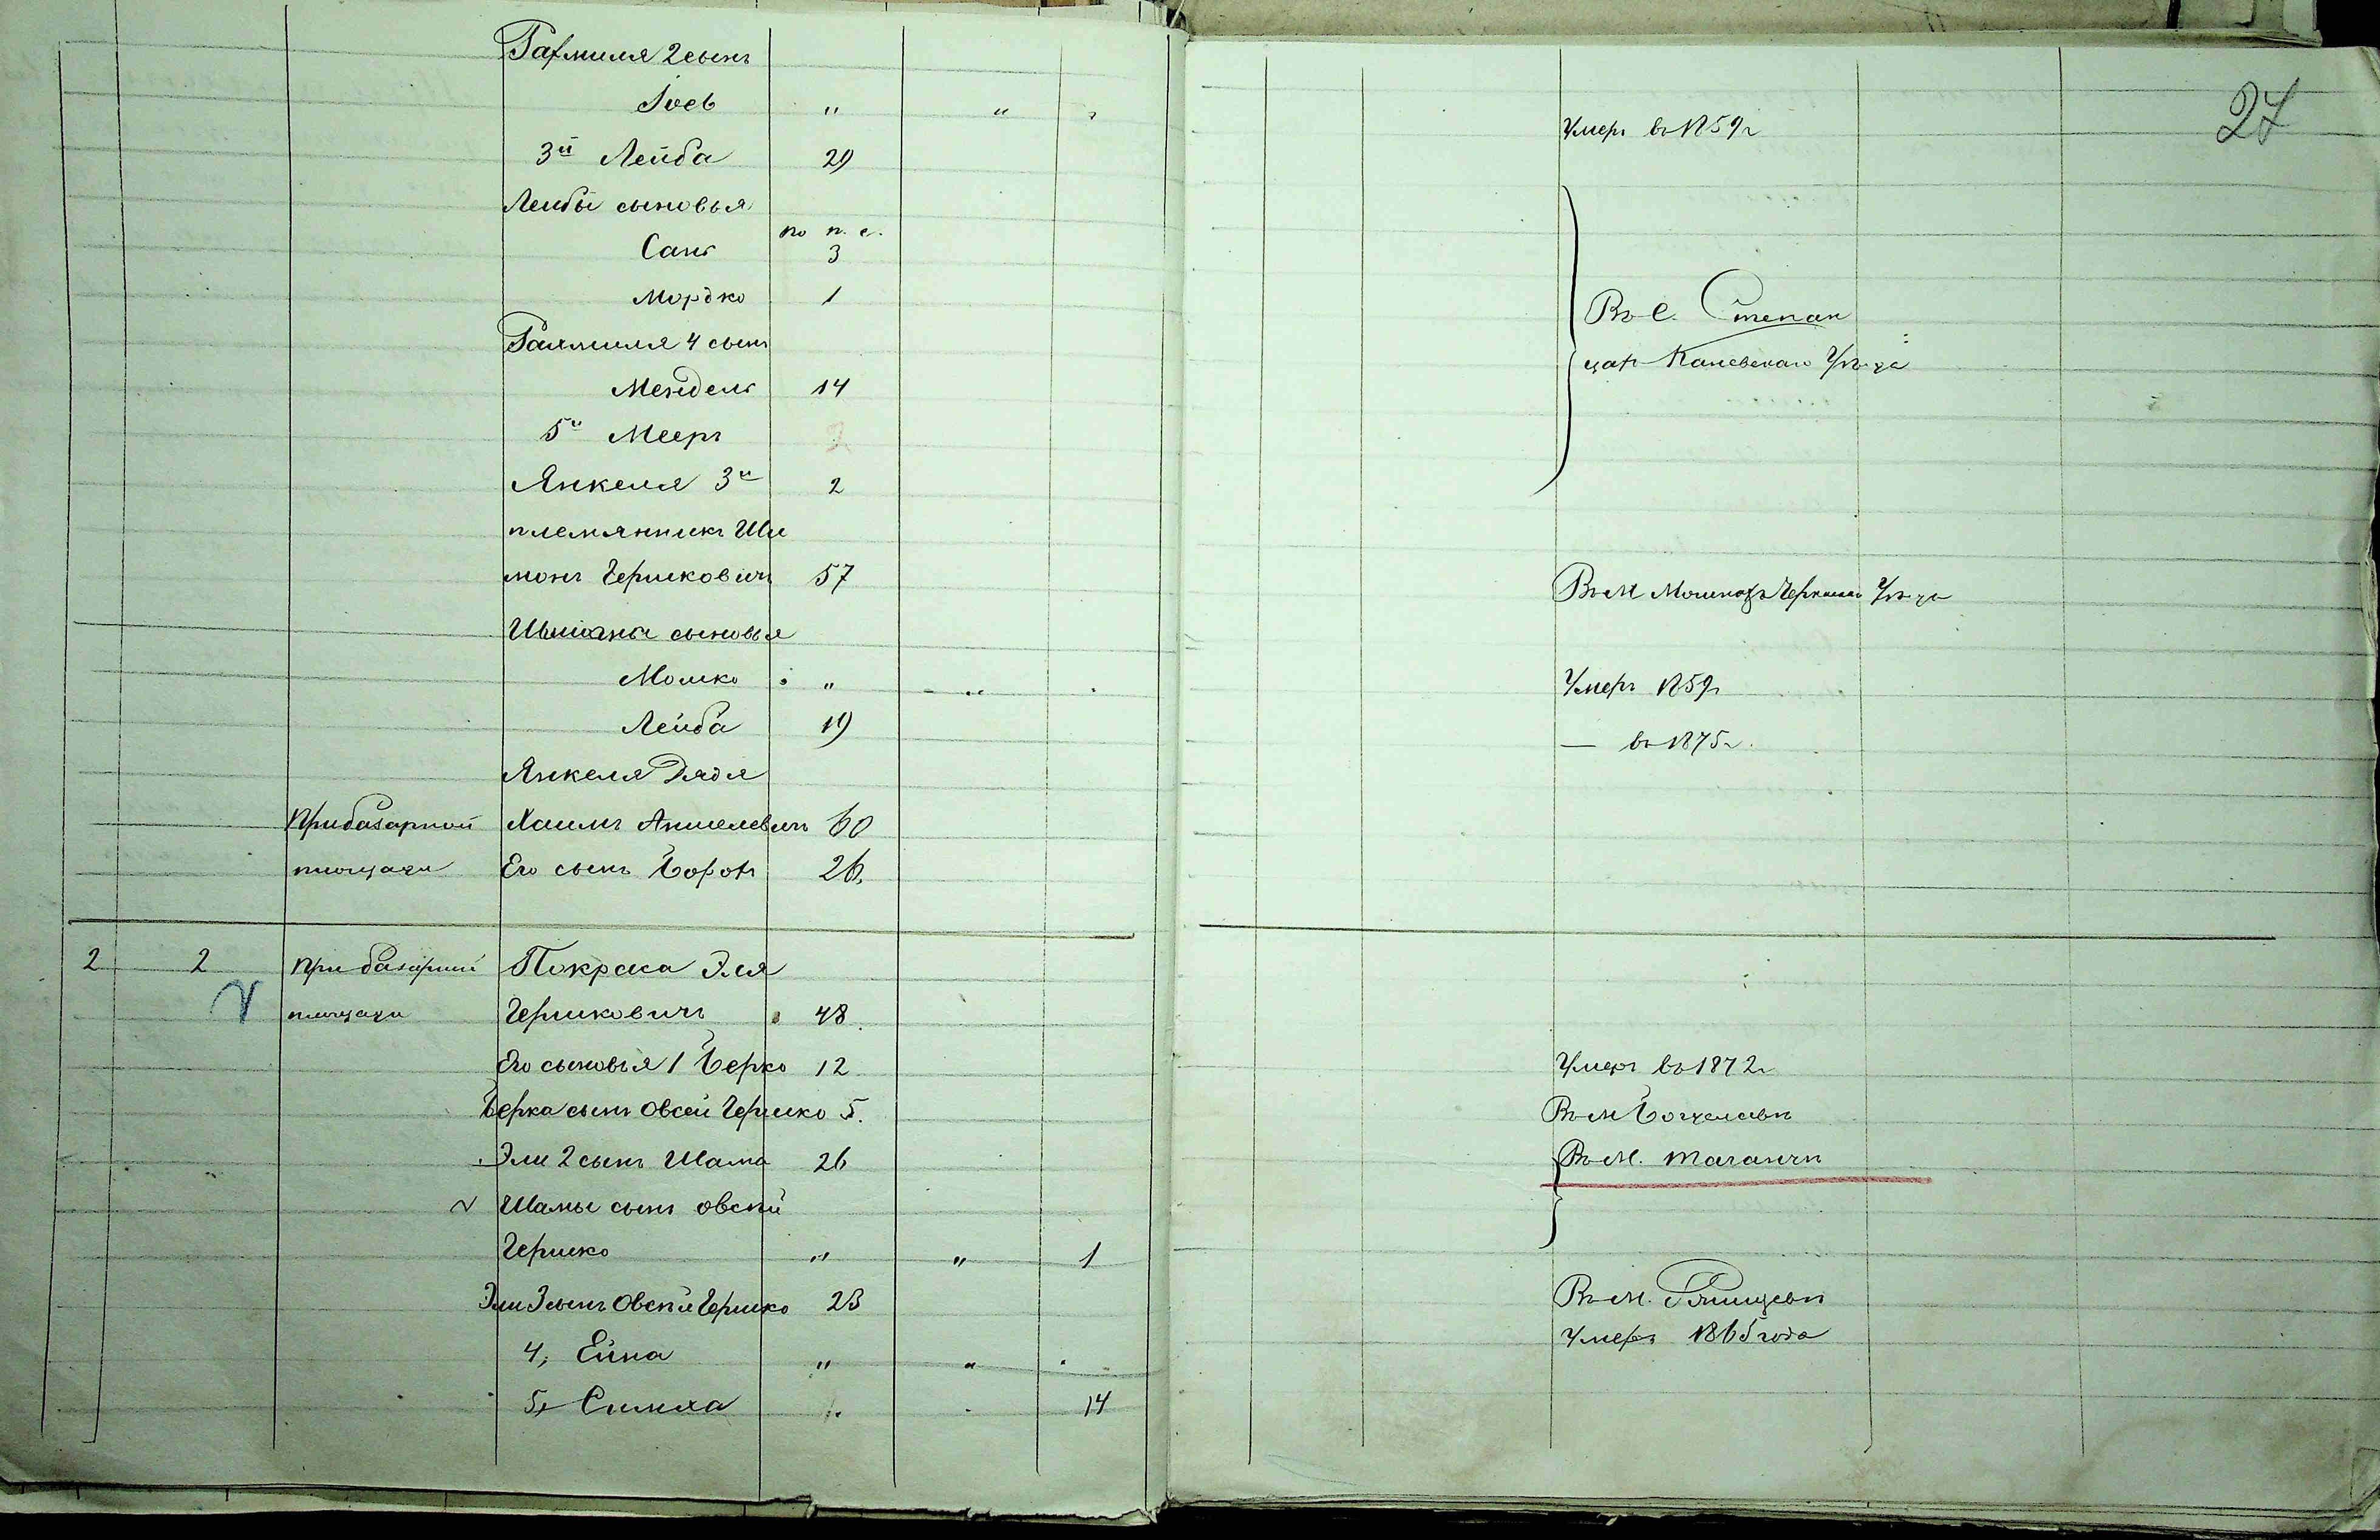 27
Рахмиля 2 сынъ
Іоев " " "
Умеръ въ 1859 г
3й Лейба 29
Лейбы сыновья
по п. с.
Санъ 3
Мордко 1
Въ с. Степан
цахъ Каневскаго Уѣзда
Рахмиля 4 сынъ
Мендель 14
5й Мееръ
Янкеля 3й 2
племянникъ Ши
монъ Гершковичъ 57
Въ М Мошнахъ Черкаскаго Уѣзда
Шимона сыновья
Мошко " "
Умеръ 1859 г
Лейба 19
— въ 1875 г.
Янкеля Дядя
При базарной Хаимъ Аншелевичъ 60
площади Его сынъ Борохъ 26
2 2 При базарной Покраса Эля
площади Гершковичъ 48
Его сыновья 1 Берко 12
Умеръ въ 1872 г
Берка сынъ Овсей Гершко 5.
Въ М Богуславѣ
Эли 2 сынъ Шама 26
Въ М. Таганчѣ
Шамы сынъ овсѣй
Гершко " " 1
Эли 3 сынъ Овсѣй Гершко 23
Въ М. Ржищевѣ
4, Ейна " "
Умеръ 1865 года
5, Симха 14